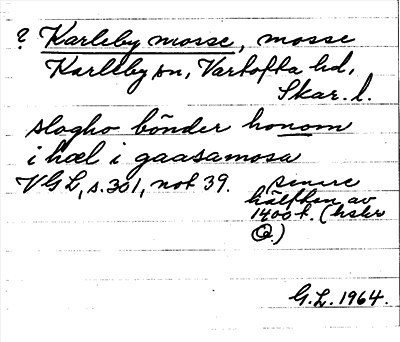 ? Karleby mosse, mosse
Karleby sn, Vartofta hd,
Skar. l.
slogho bönder honom
i hæl i gaasamosa
VGL, s. 301, not 39. senare
hälften av
1400 t. (hskr
Q.)
G.L. 1964.